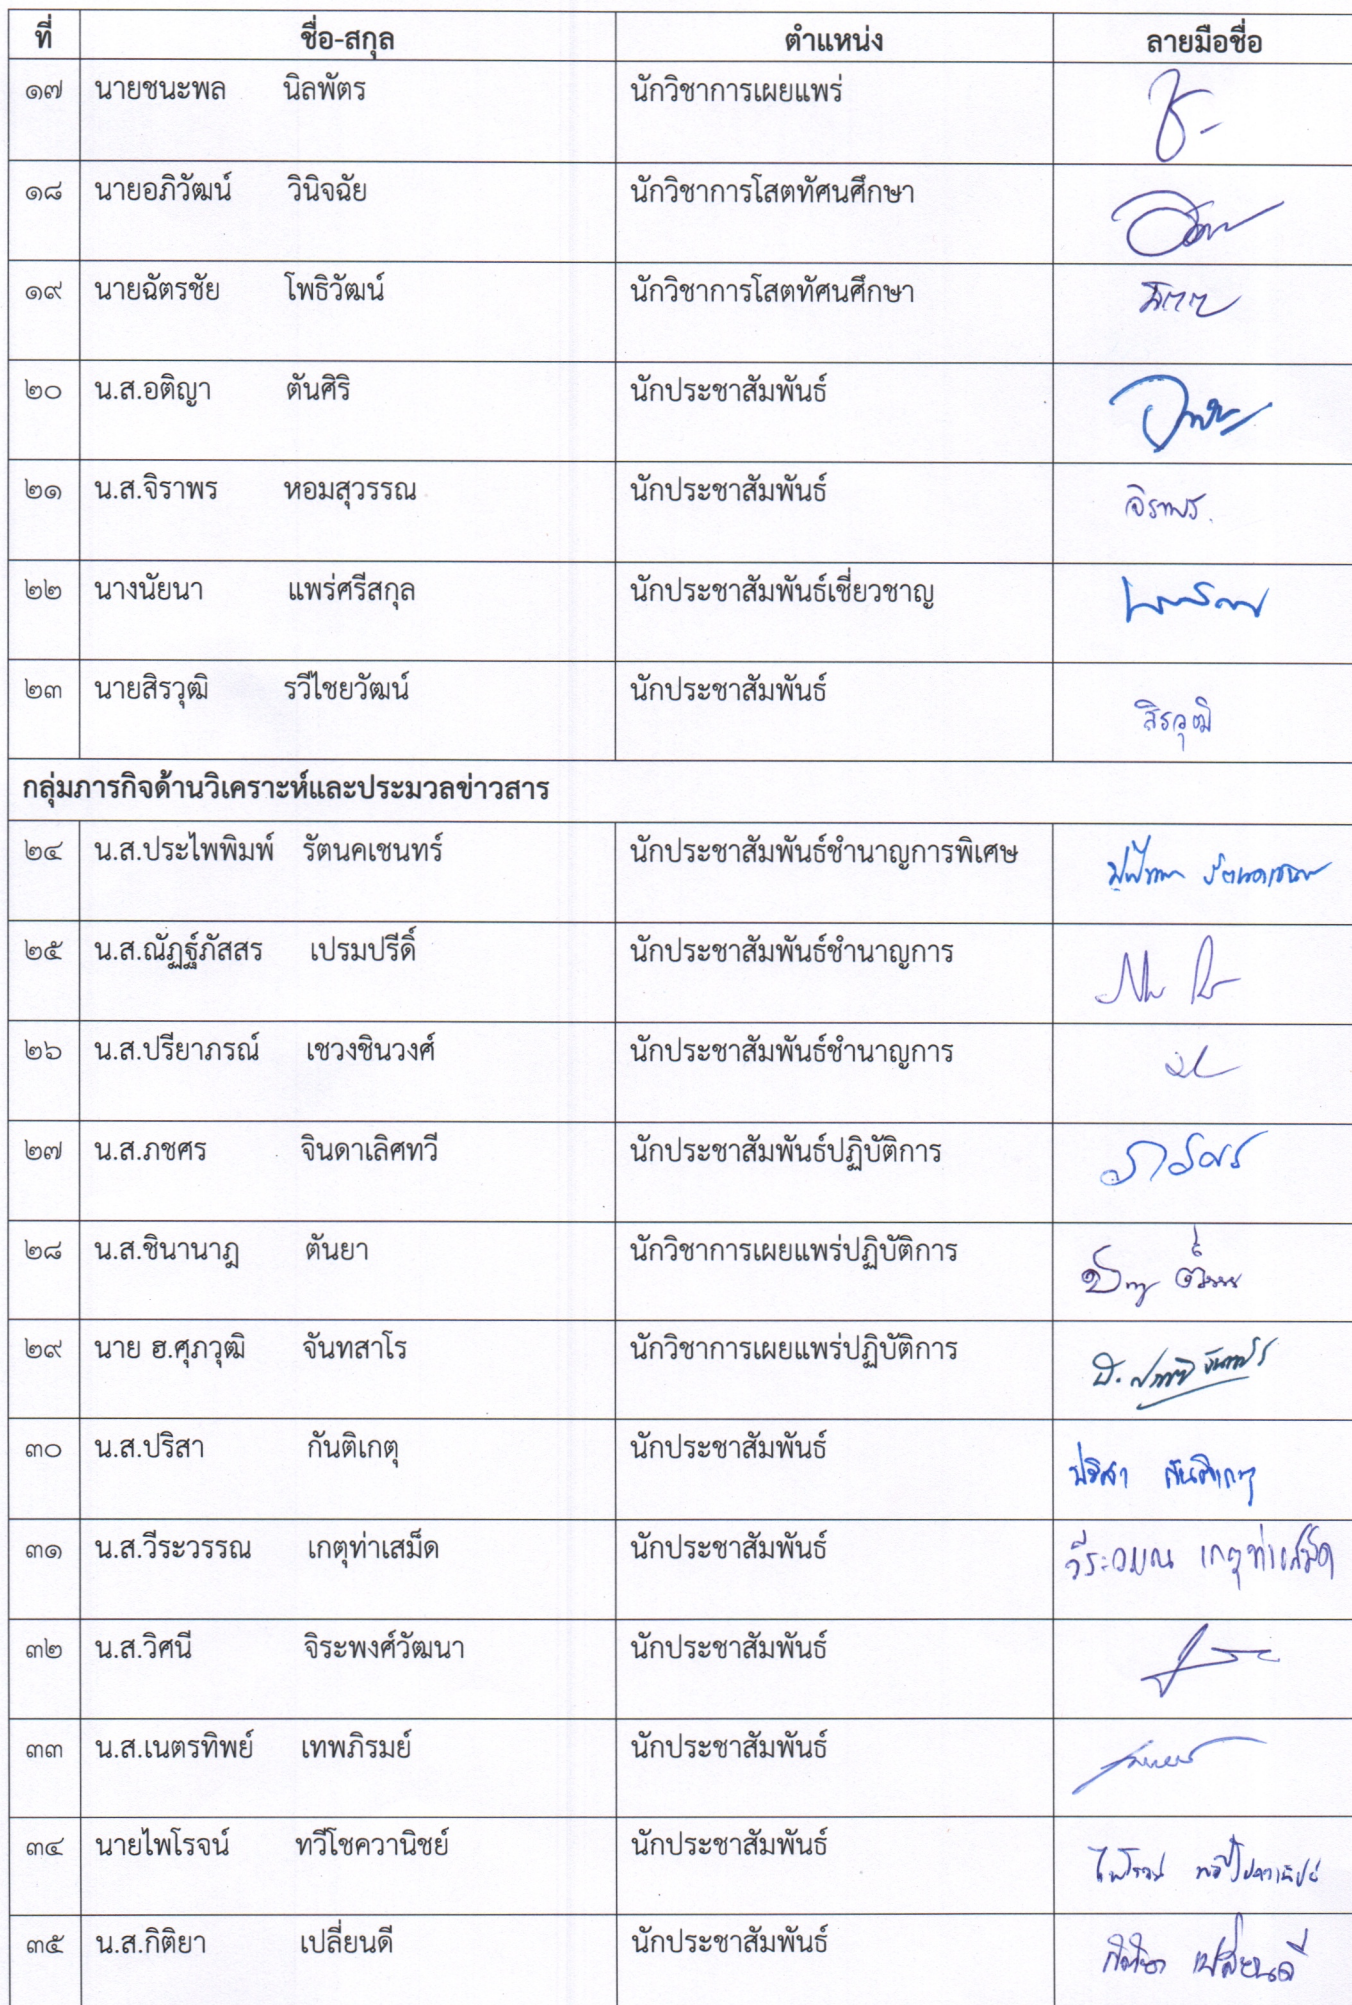 ที่ ชื่อ-สกุล ตำแหน่ง ลายมือชื่อ
๑๗ นายชนะพล นิลพัตร นักวิชาการเผยแพร่
๑๘ นายอภิวัฒน์ วินิจฉัย นักวิชาการโสตทัศนศึกษา
๑๙ นายฉัตรชัย โพธิวัฒน์ นักวิชาการโสตทัศนศึกษา
๒๐ น.ส.อติญา ตันศิริ นักประชาสัมพันธ์
๒๑ น.ส.จิราพร หอมสุวรรณ นักประชาสัมพันธ์ จิราพร.
๒๒ นางนัยนา แพร่ศรีสกุล นักประชาสัมพันธ์เชี่ยวชาญ
๒๓ นายสิรวุฒิ รวีไชยวัฒน์ นักประชาสัมพันธ์ สิรวุฒิ
กลุ่มภารกิจด้านวิเคราะห์และประมวลข่าวสาร
๒๔ น.ส.ประไพพิมพ์ รัตนคเชนทร์ นักประชาสัมพันธ์ชำนาญการพิเศษ
๒๕ น.ส.ณัฏฐ์ภัสสร เปรมปรีดิ์ นักประชาสัมพันธ์ชำนาญการ
๒๖ น.ส.ปรียาภรณ์ เชวงชินวงศ์ นักประชาสัมพันธ์ชำนาญการ
๒๗ น.ส.ภชศร จินดาเลิศทวี นักประชาสัมพันธ์ปฏิบัติการ
๒๘ น.ส.ชินานาฏ ตันยา นักวิชาการเผยแพร่ปฏิบัติการ
๒๙ นาย ฮ.ศุภวุฒิ จันทสาโร นักวิชาการเผยแพร่ปฏิบัติการ
๓๐ น.ส.ปริสา กันติเกตุ นักประชาสัมพันธ์ ปริสา กันติเกตุ
๓๑ น.ส.วีระวรรณ เกตุท่าเสม็ด นักประชาสัมพันธ์ วีระวรรณ เกตุท่าเสม็ด
๓๒ น.ส.วิศนี จิระพงศ์วัฒนา นักประชาสัมพันธ์
๓๓ น.ส.เนตรทิพย์ เทพภิรมย์ นักประชาสัมพันธ์
๓๔ นายไพโรจน์ ทวีโชควานิชย์ นักประชาสัมพันธ์ ไพโรจน์ ทวีโชควานิชย์
๓๕ น.ส.กิติยา เปลี่ยนดี นักประชาสัมพันธ์ กิติยา เปลี่ยนดี